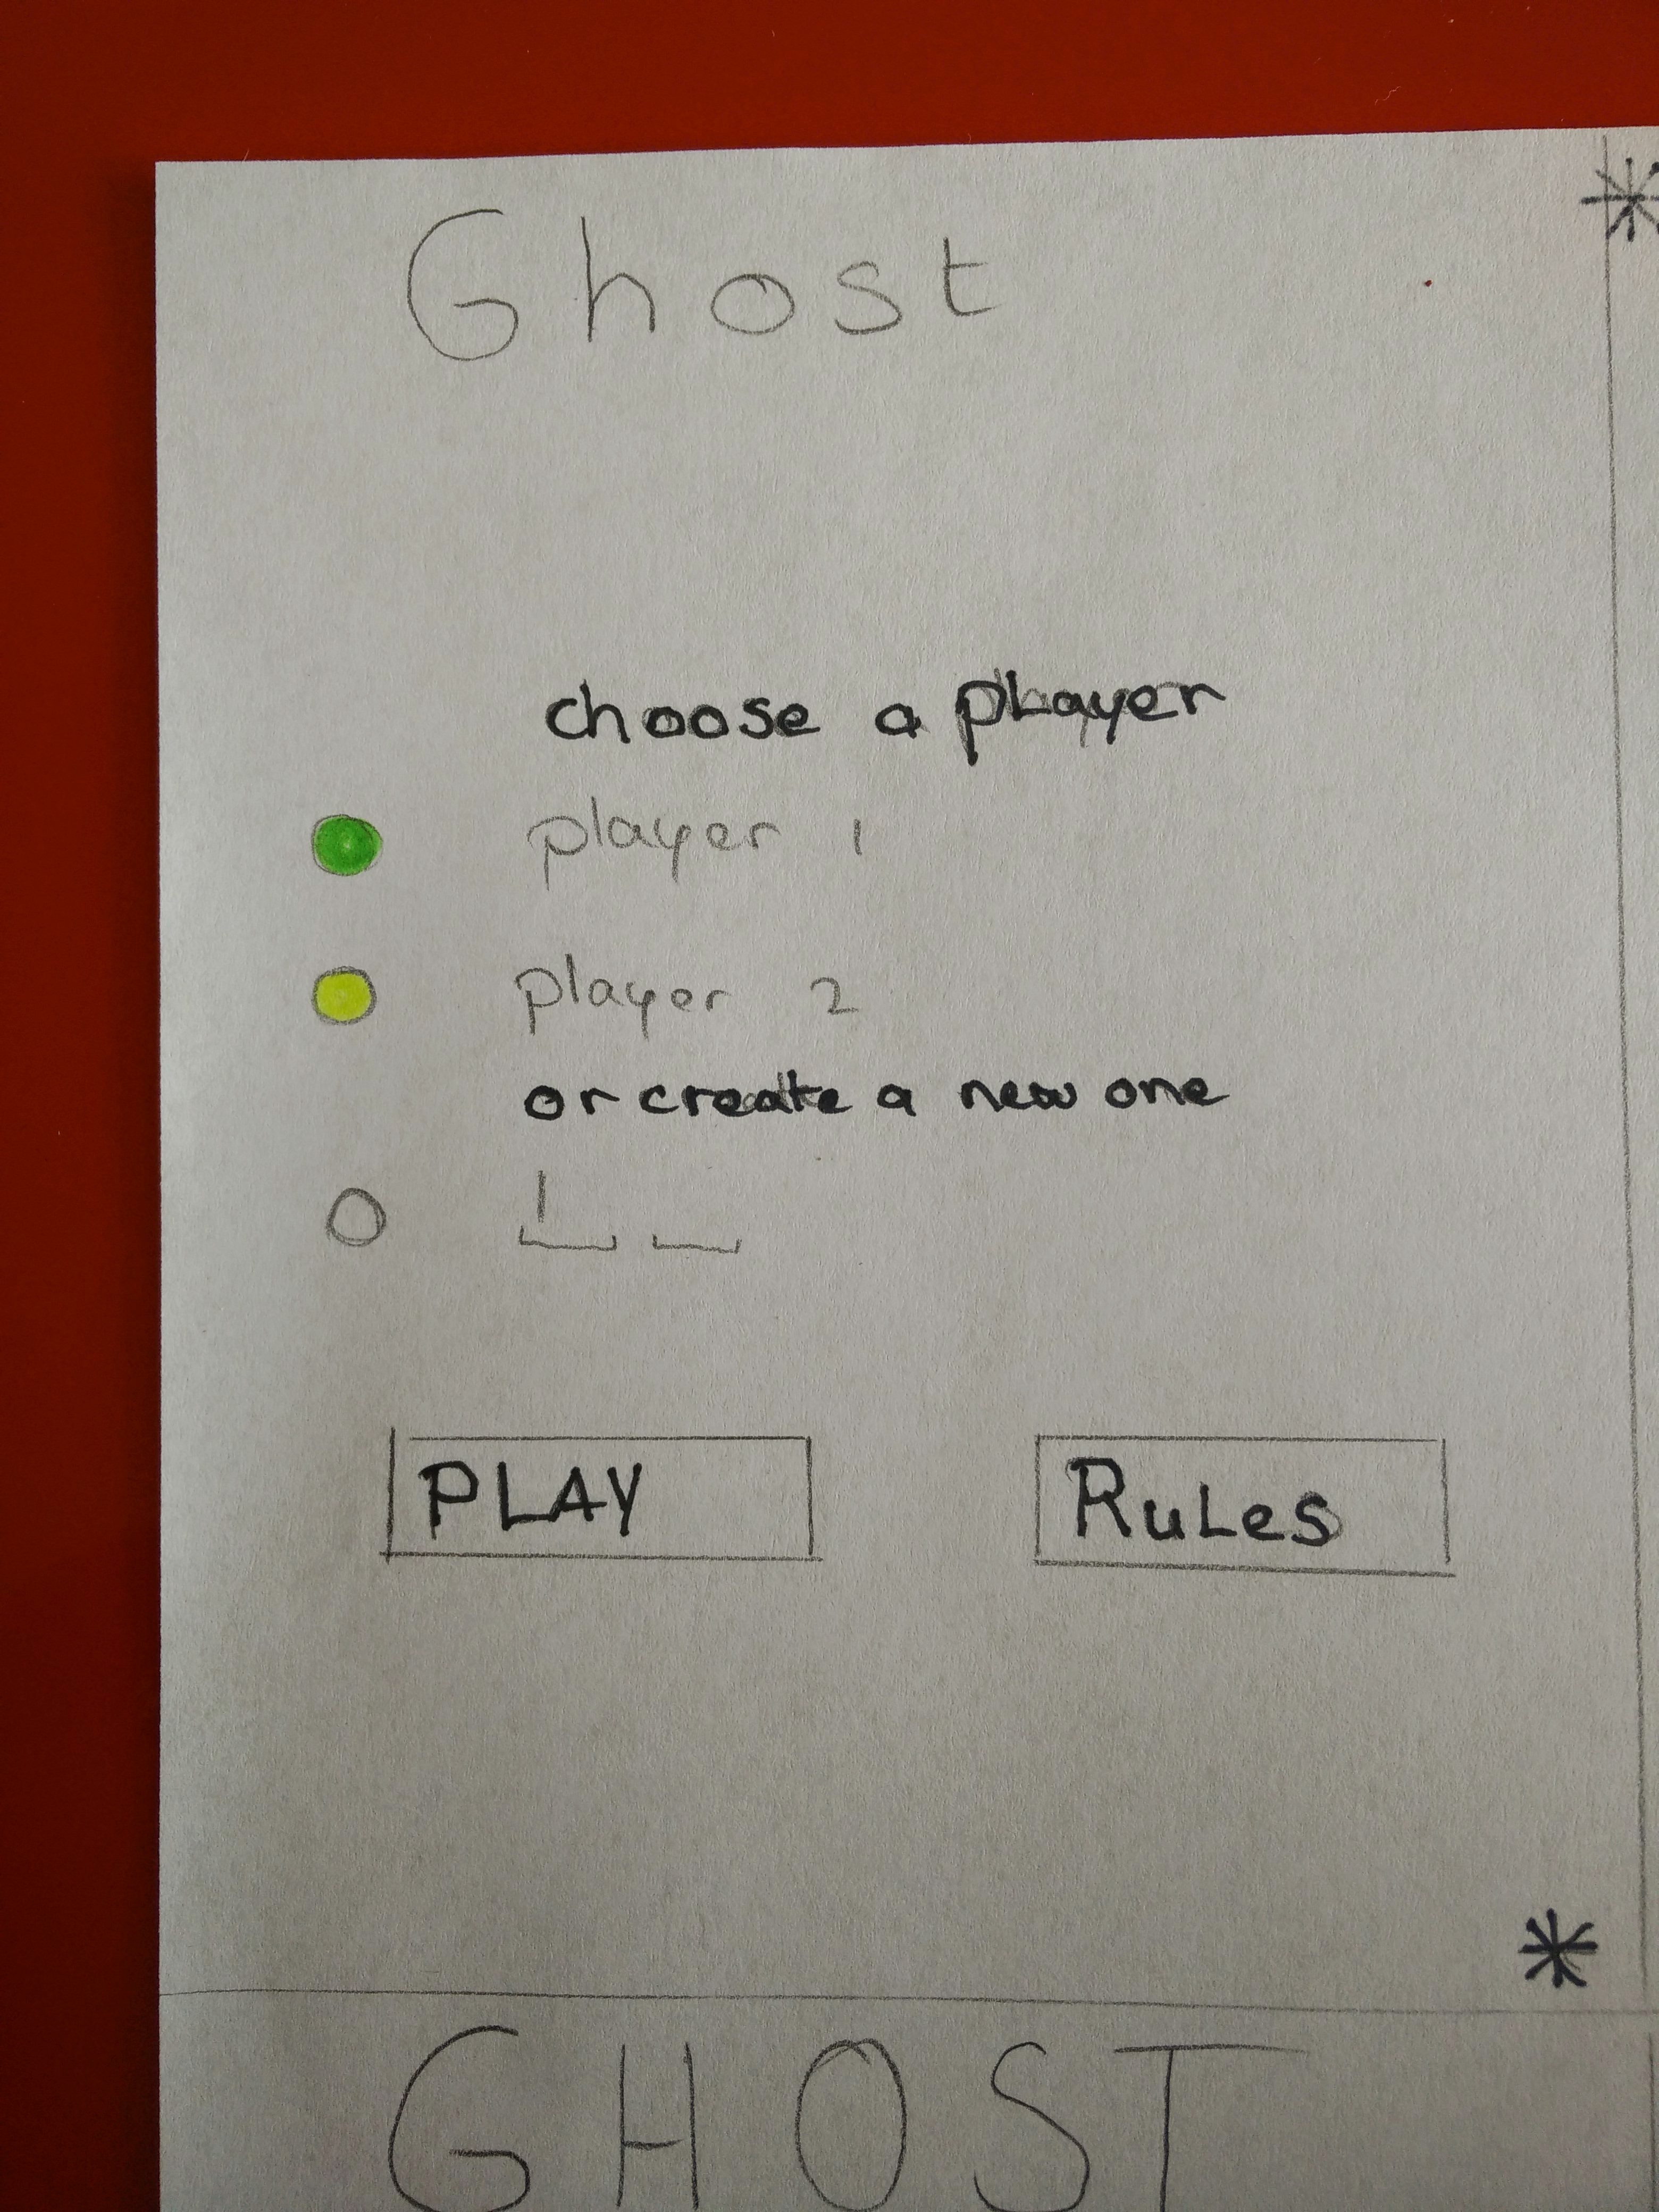 Ghost
choose a player
player 1
player 2
or create a new one
PLAY
Rules
GHOST